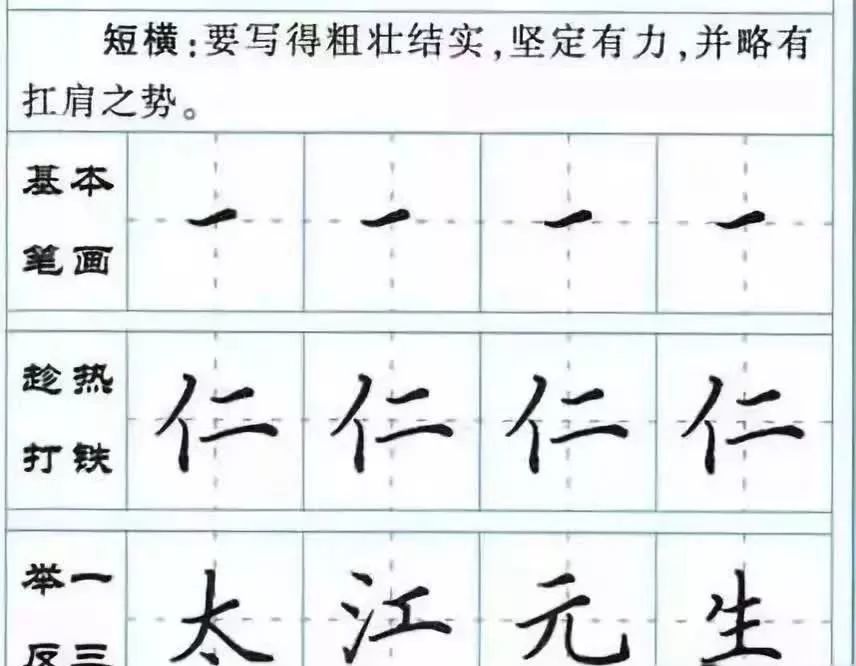 短横：要写得粗壮结实，坚定有力，并略有
扛肩之势。
基本
笔画
一 一 一 一
趁热
打铁
仁 仁 仁 仁
举一
反三
太 江 元 生